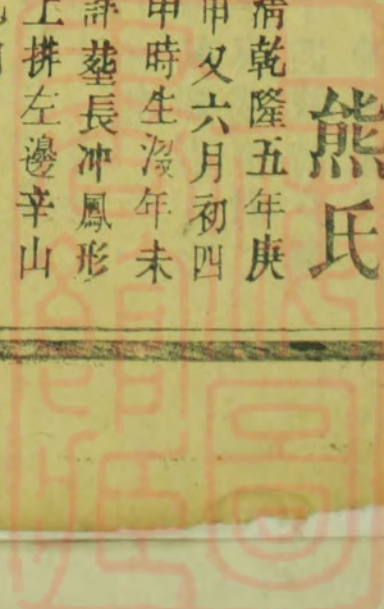 熊氏
清乾隆五年庚
申又六月初四
申時生没年未
詳塟長冲鳳形
上排左邊辛山